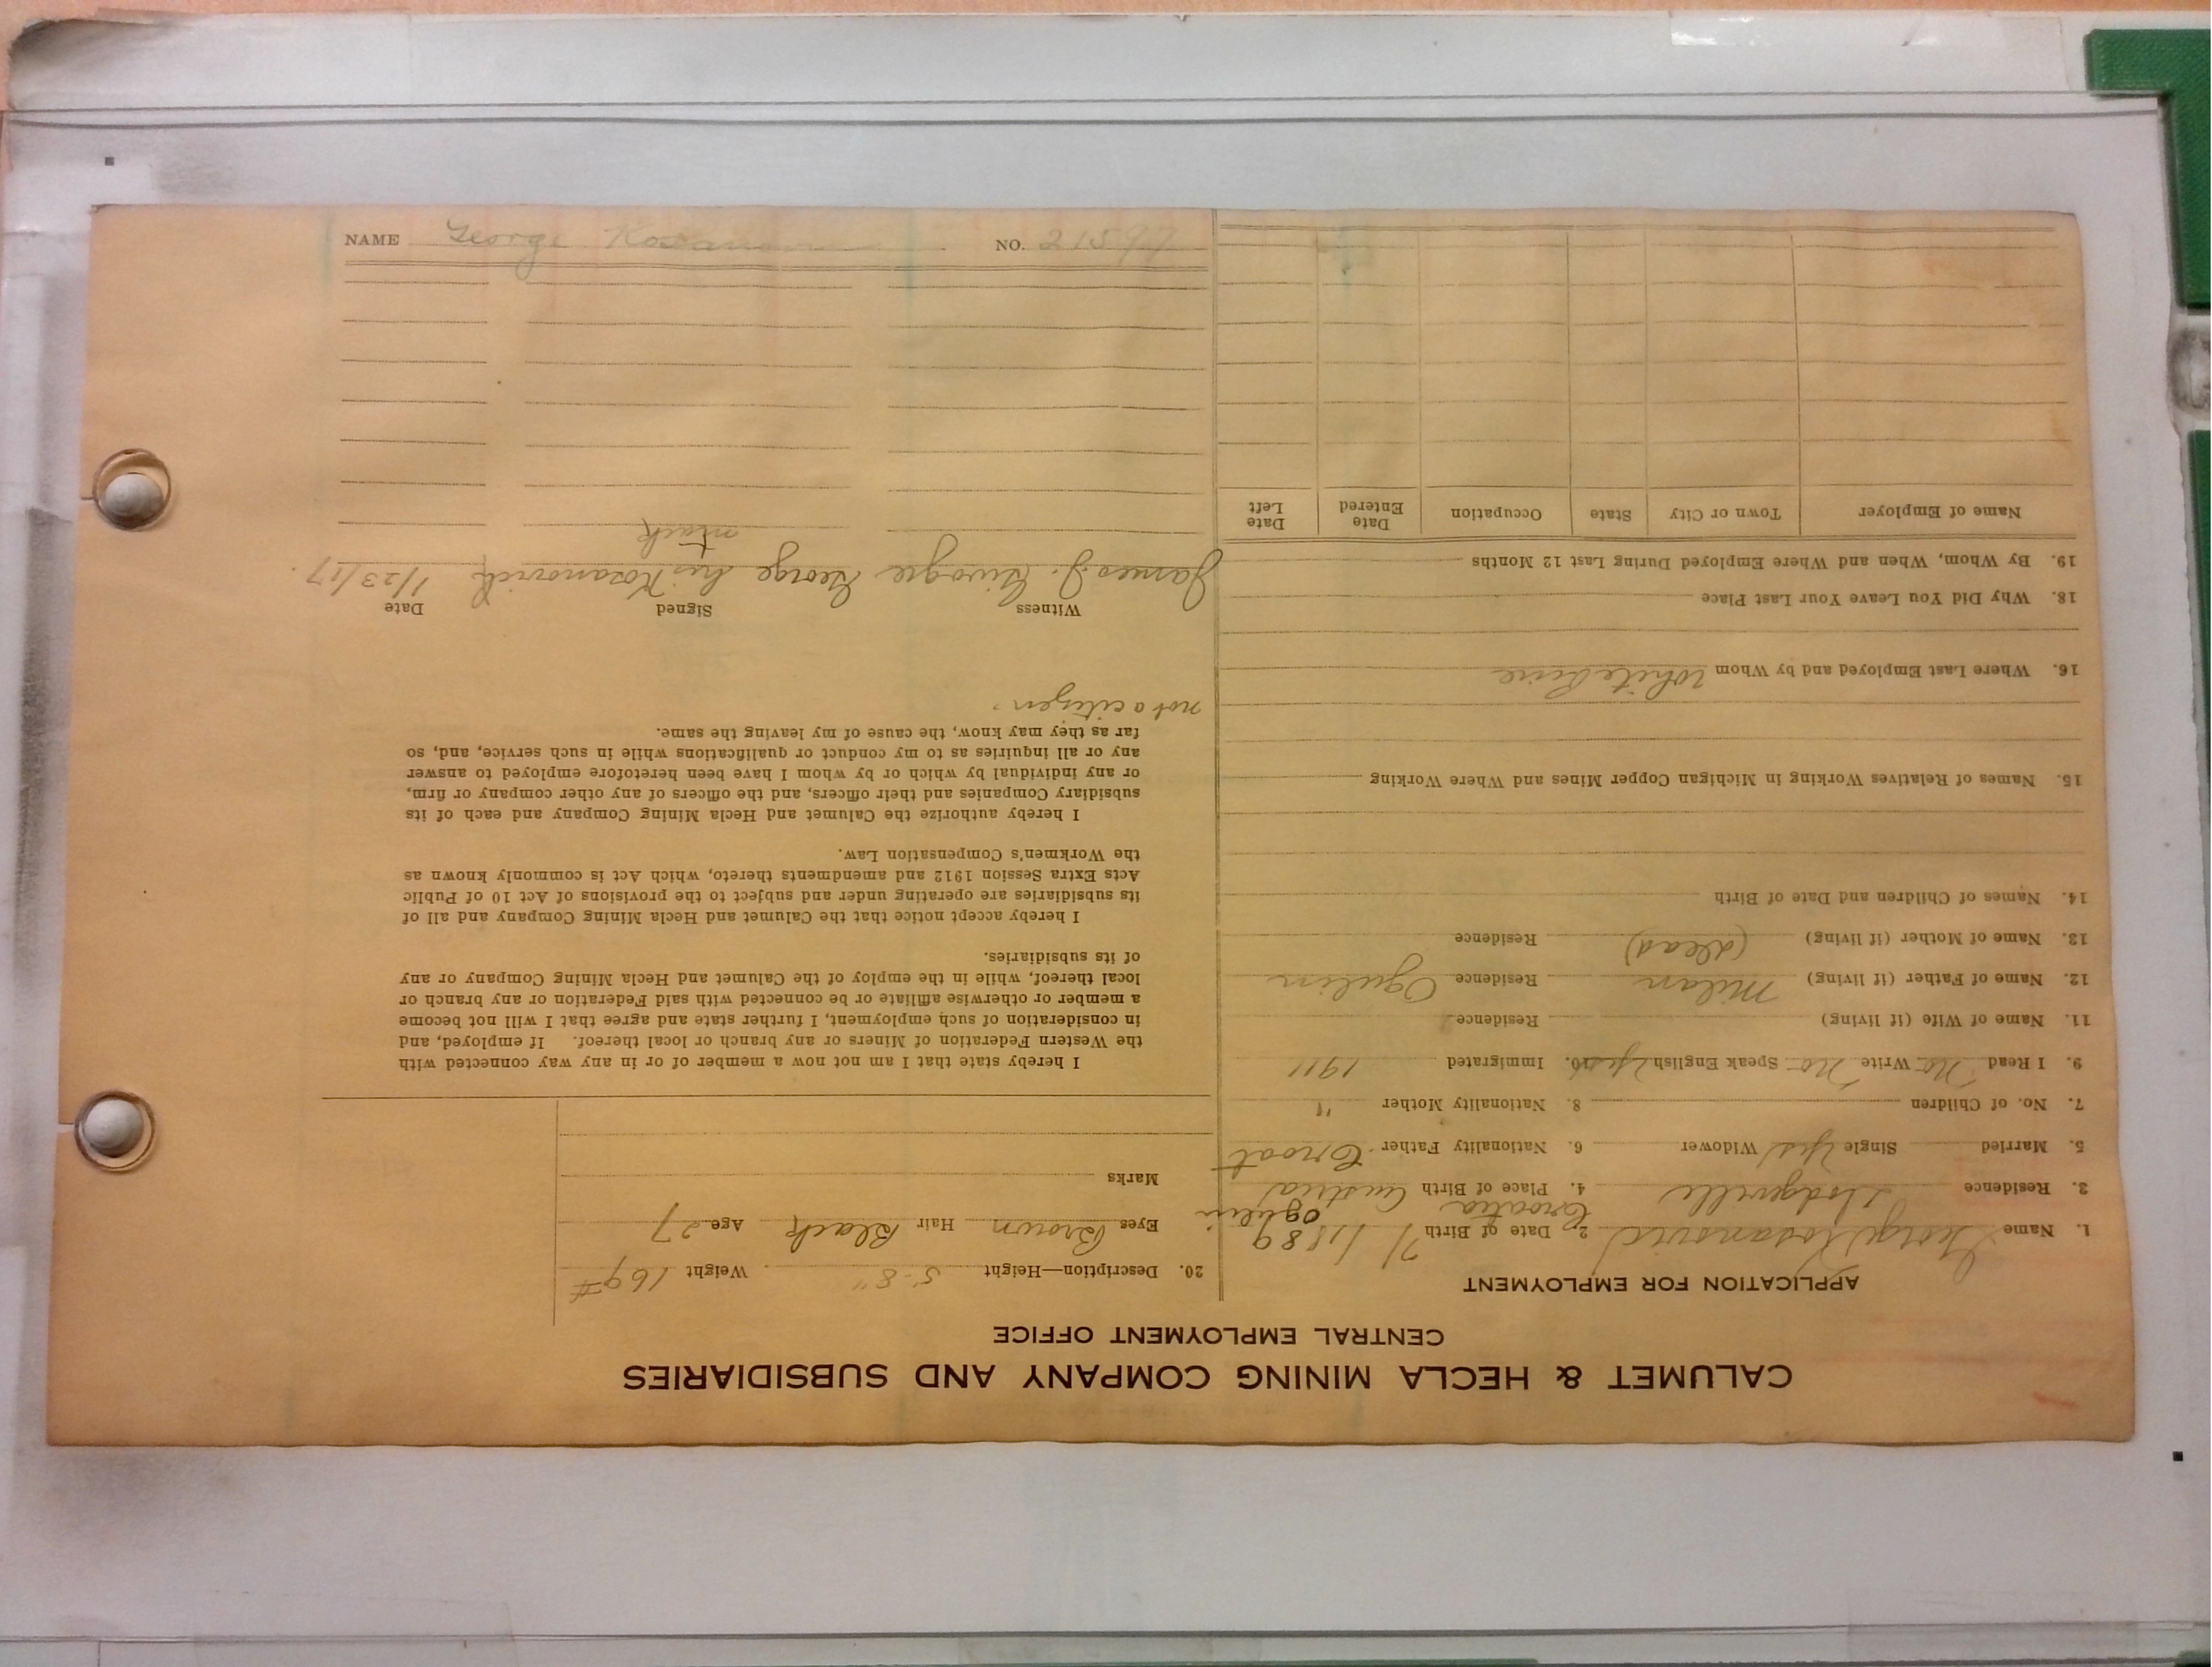 CALUMET & HECLA MINING COMPANY AND SUBSIDIARIES
CENTRAL EMPLOYMENT OFFICE
APPLICATION FOR EMPLOYMENT
1. Name George Kosanovich 2. Date of Birth 7/1/1889
3. Residence Hodgeville 4. Place of Birth Croatia Austria Ogulin
5. Married Single Yes Widower 6. Nationality Father Croat
7. No. of Children 8. Nationality Mother "
9. I Read No Write No Speak English Yes 10. Immigrated 1911
11. Name of Wife (if living) Residence
12. Name of Father (if living) Milan Residence Ogulin
13. Name of Mother (if living) (dead) Residence
14. Names of Children and Date of Birth
15. Names of Relatives Working in Michigan Copper Mines and Where Working
16. Where Last Employed and by Whom White Pine
18. Why Did You Leave Your Last Place
19. By Whom, When and Where Employed During Last 12 Months
Name of Employer Town or City State Occupation Date Entered Date Left
20. Description—Height 5-8" Weight 169#
Eyes Brown Hair Black Age 27
Marks
I hereby state that I am not now a member of or in any way connected with
the Western Federation of Miners or any branch or local thereof. If employed, and
in consideration of such employment, I further state and agree that I will not become
a member or otherwise affiliate or be connected with said Federation or any branch or
local thereof, while in the employ of the Calumet and Hecla Mining Company or any
of its subsidiaries.
I hereby accept notice that the Calumet and Hecla Mining Company and all of
its subsidiaries are operating under and subject to the provisions of Act 10 of Public
Acts Extra Session 1912 and amendments thereto, which Act is commonly known as
the Workmen's Compensation Law.
I hereby authorize the Calumet and Hecla Mining Company and each of its
subsidiary Companies and their officers, and the officers of any other company or firm,
or any individual by which or by whom I have been heretofore employed to answer
any or all inquiries as to my conduct or qualifications while in such service, and, so
far as they may know, the cause of my leaving the same.
not a citizen.
Witness Signed Date
James J. George his Kosanovich 1/23/17
mark
NAME George NO. 21597